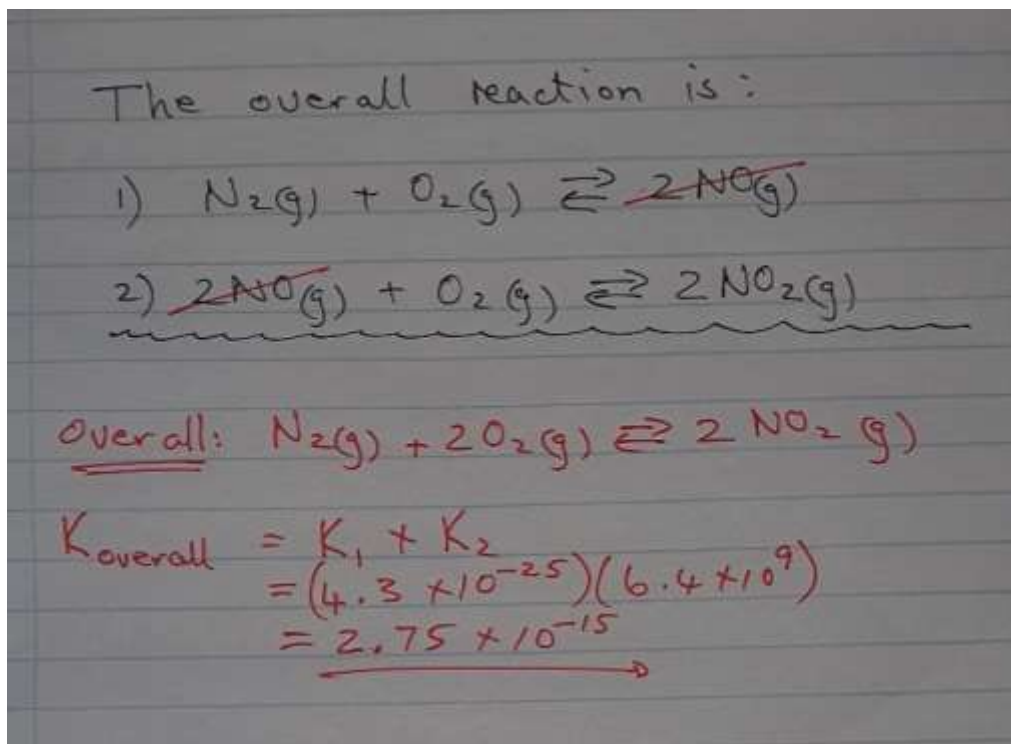 The overall reaction is:
1) N₂(g) + O₂(g) ⇄ 2NO(g)
2) 2NO(g) + O₂(g) ⇄ 2NO₂(g)
Overall: N₂(g) + 2O₂(g) ⇄ 2NO₂(g)
K overall = K₁ × K₂
= (4.3 × 10⁻²⁵)(6.4 × 10⁹)
= 2.75 × 10⁻¹⁵